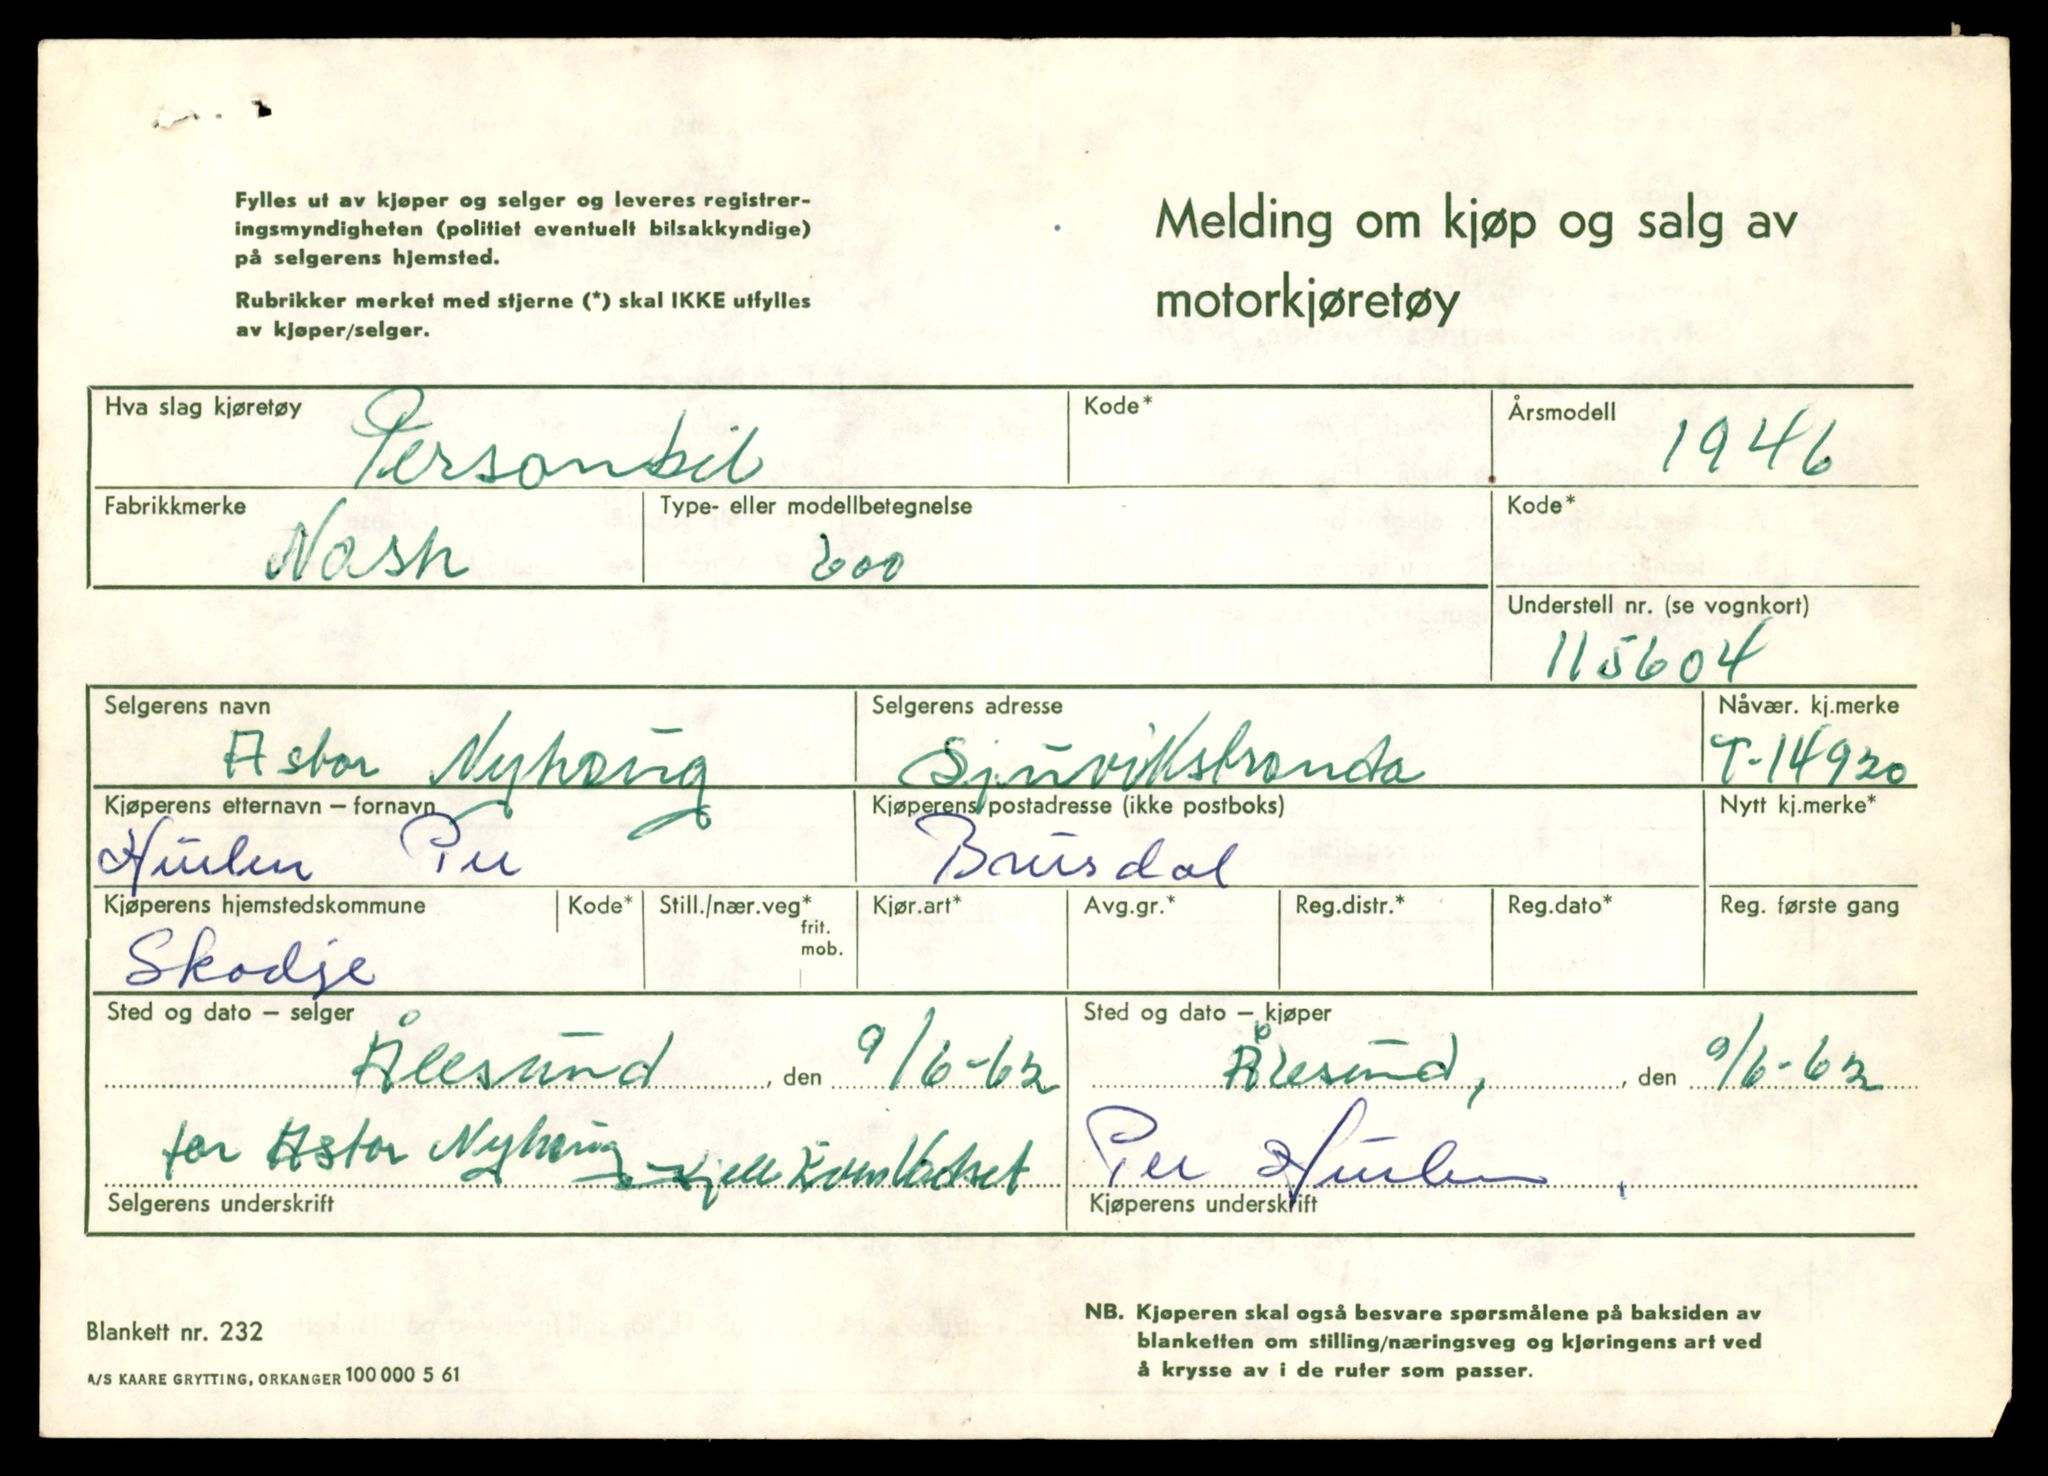 Fylles ut av kjøper og selger og leveres registrer-
ingsmyndigheten (politiet eventuelt bilsakkyndige)
på selgerens hjemsted.
Rubrikker merket med stjerne (*) skal IKKE utfylles
av kjøper/selger.
Melding om kjøp og salg av
motorkjøretøy
Hva slag kjøretøy Personbil
Kode*
Årsmodell 1946
Fabrikkmerke Nash
Type- eller modellbetegnelse 600
Kode*
Understell nr. (se vognkort)
115604
Selgerens navn
Astor Nyhaug
Selgerens adresse
Sjuvikstranda
Nåvær. kj.merke
T-14920
Kjøperens etternavn – fornavn
Hurlen Per
Kjøperens postadresse (ikke postboks)
Brusdal
Nytt kj.merke*
Kjøperens hjemstedskommune
Skodje
Kode*
Still./nær.veg*
frit.
mob.
Kjør.art*
Avg.gr.*
Reg.distr.*
Reg.dato*
Reg. første gang
Sted og dato – selger
Ålesund, den 9/6-62
for Astor Nyhaug Kjell
Selgerens underskrift
Sted og dato – kjøper
Ålesund, den 9/6-62
Per Hurlen
Kjøperens underskrift
Blankett nr. 232
A/S KAARE GRYTTING, ORKANGER 100 000 5 61
NB. Kjøperen skal også besvare spørsmålene på baksiden av
blanketten om stilling/næringsveg og kjøringens art ved
å krysse av i de ruter som passer.